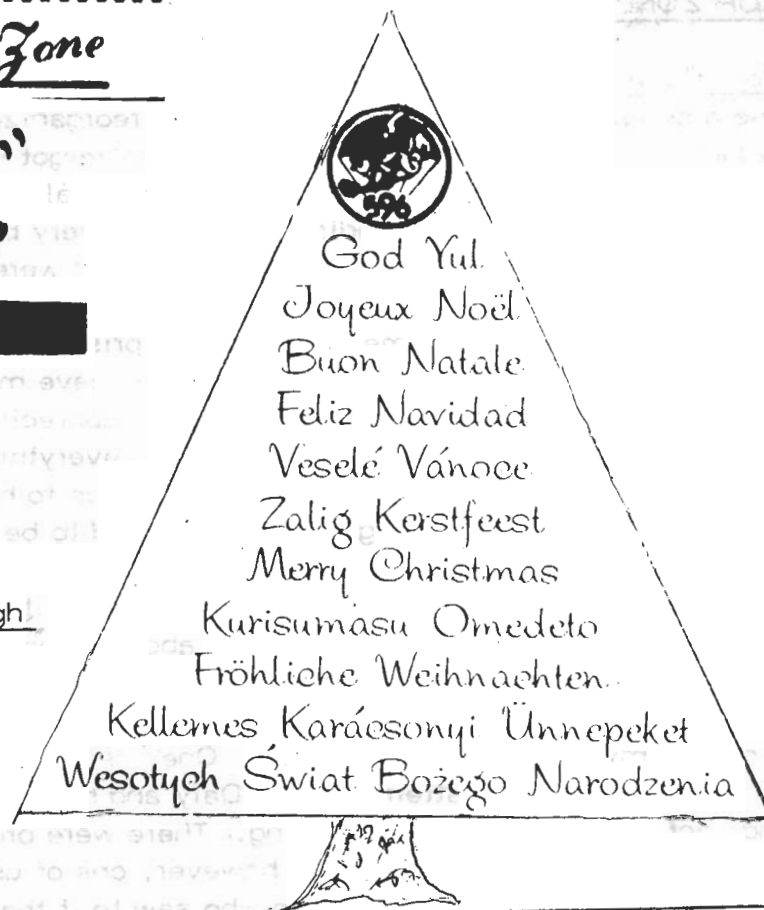 Zone
"
596
God Yul
Joyeux Noël
Buon Natale
Feliz Navidad
Veselé Vánoce
Zalig Kerstfeest
Merry Christmas
gh
Kurisumasu Omedeto
Fröhliche Weihnachten
Kellemes Karácsonyi Ünnepeket
Wesotych Świat Bożego Narodzenia